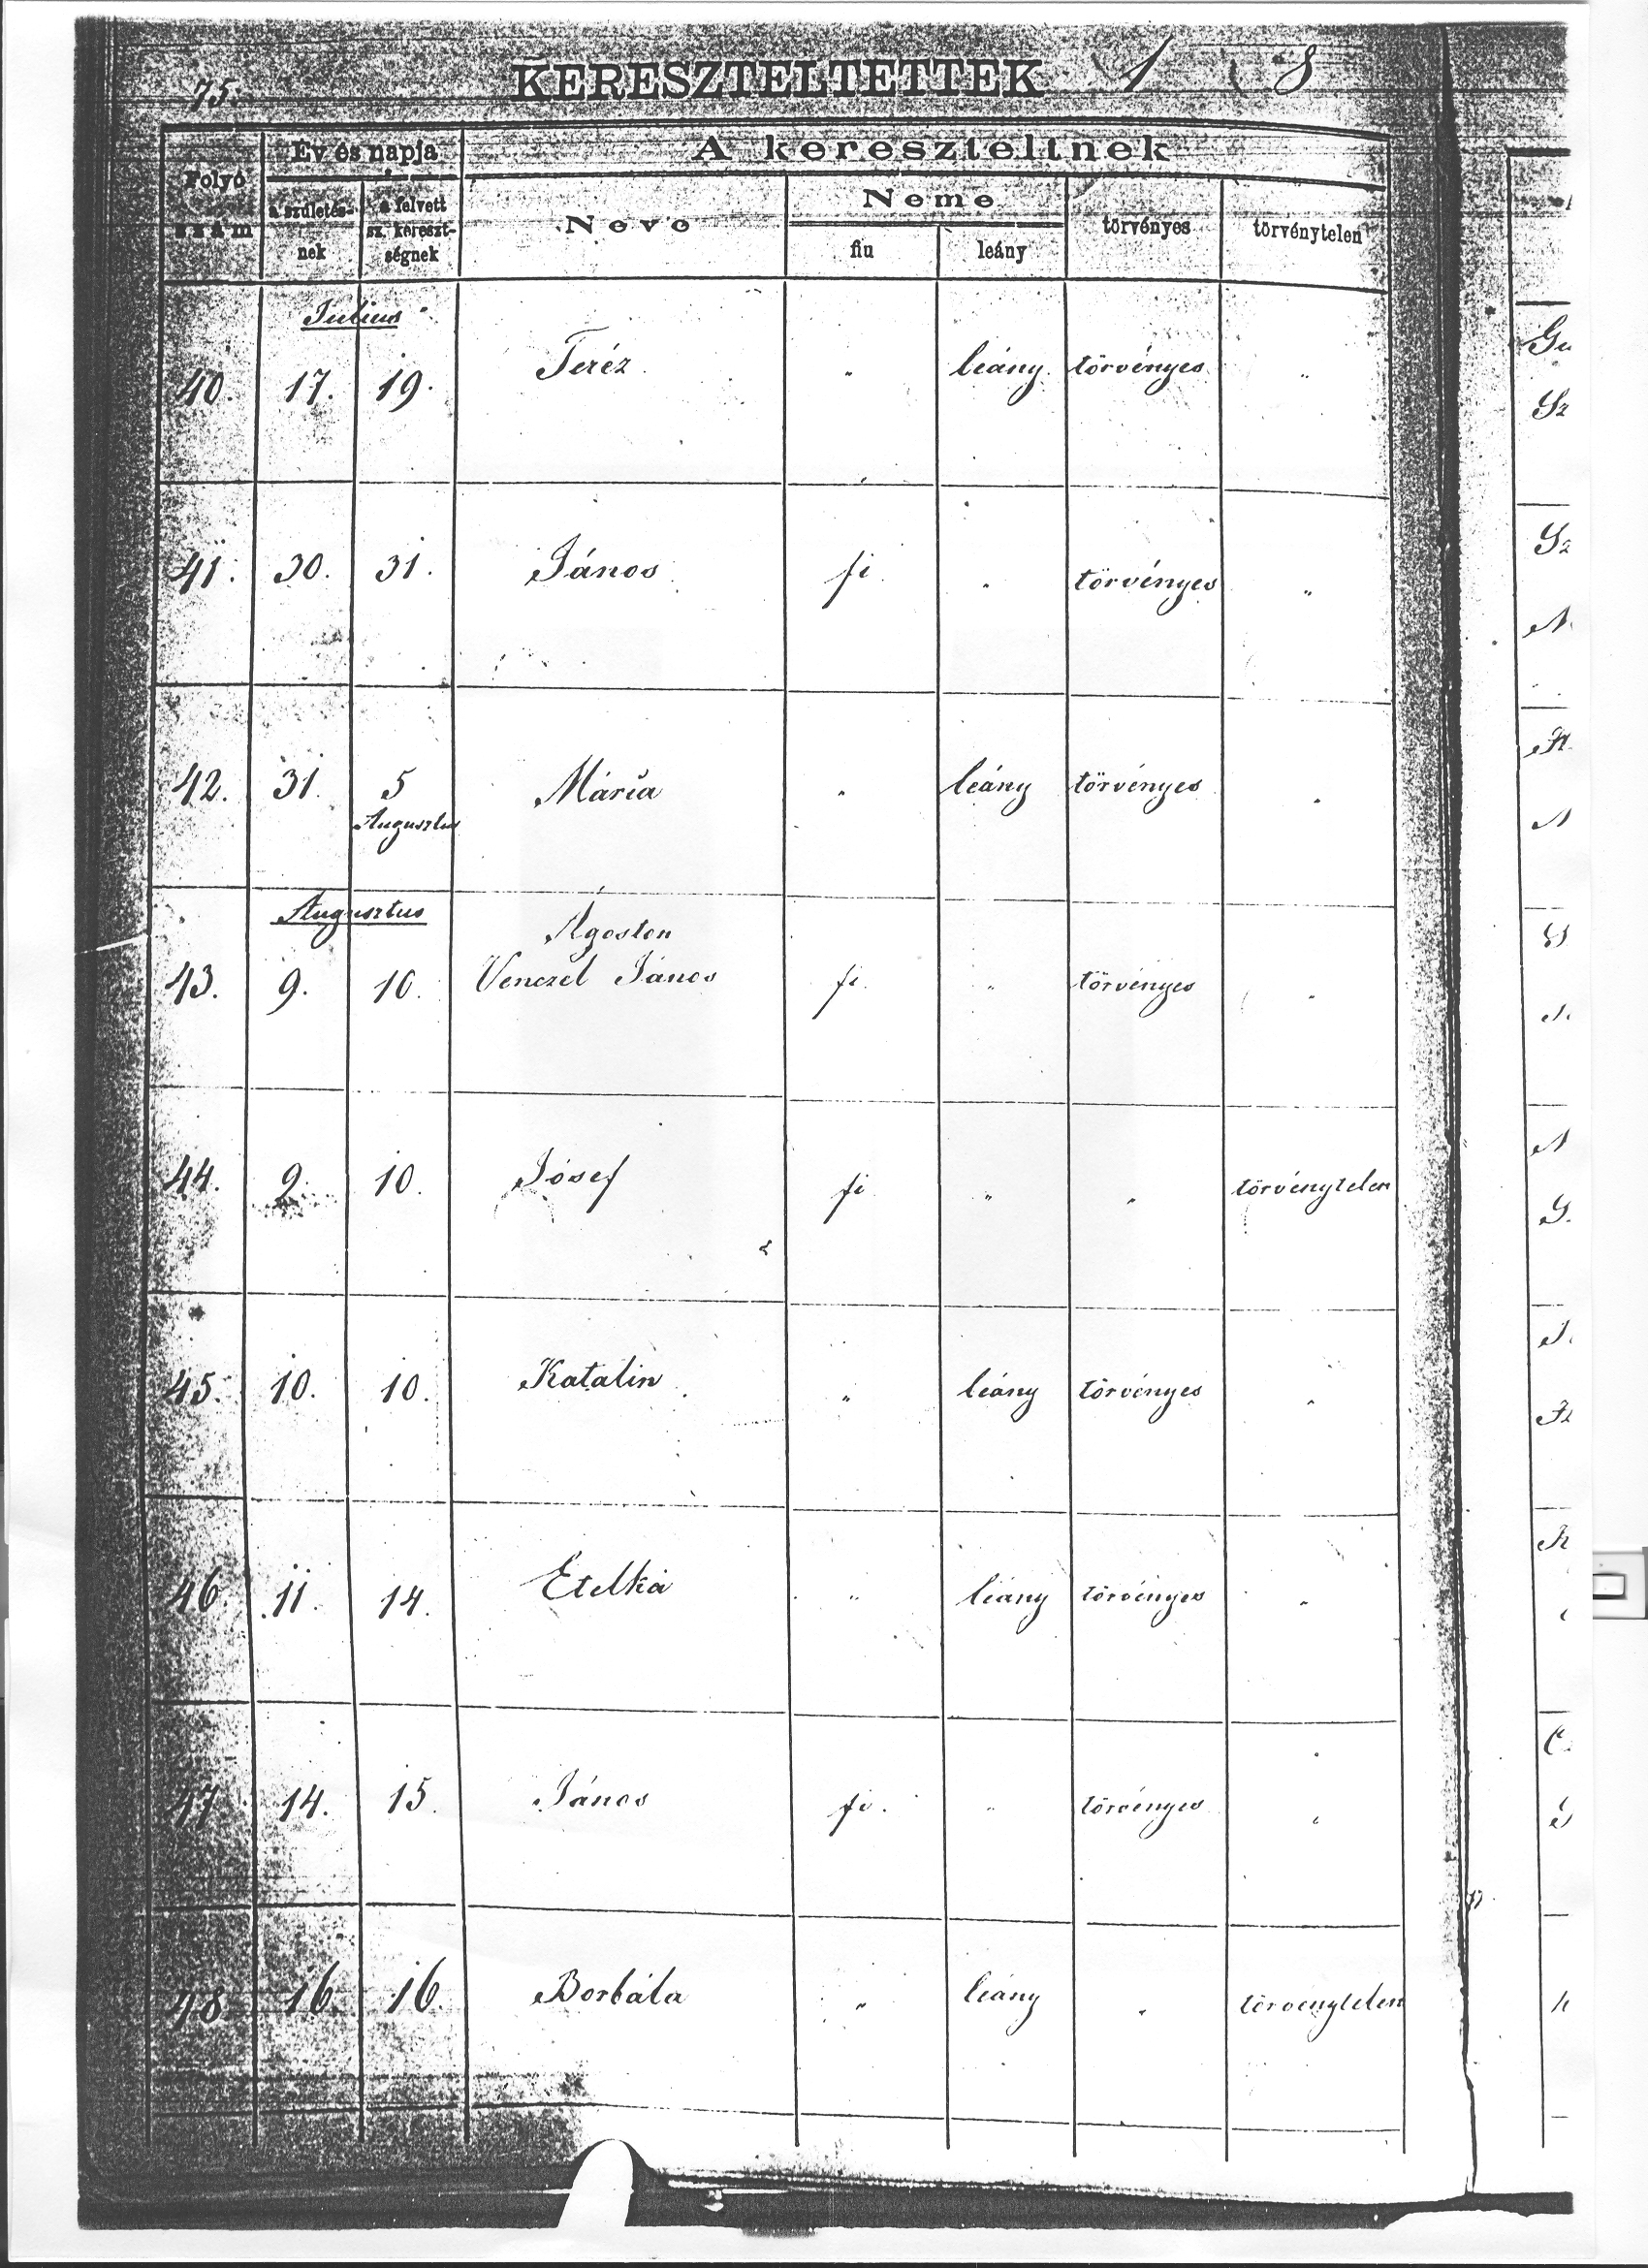 75.
KERESZTELTETTEK 1 8
Folyó szám
Év és napja
a születés-nek
a felvett sz. kereszt-ségnek
A kereszteltnek
Neve
Neme
fiu
leány
törvényes
törvénytelen
Július
40. 17. 19. Teréz " leány törvényes "
41. 30. 31. János fi " törvényes "
42. 31. 5 Mária " leány törvényes "
Augusztus
Augusztus
Ágoston
43. 9. 10. Venczel János fi " törvényes "
44. 9. 10. Jósef fi " " törvénytelen
45. 10. 10. Katalin " leány törvényes "
46. 11. 14. Etelka " leány törvényes "
47 14. 15. János fi. " törvényes "
48. 16. 16. Borbála " leány " törvénytelen